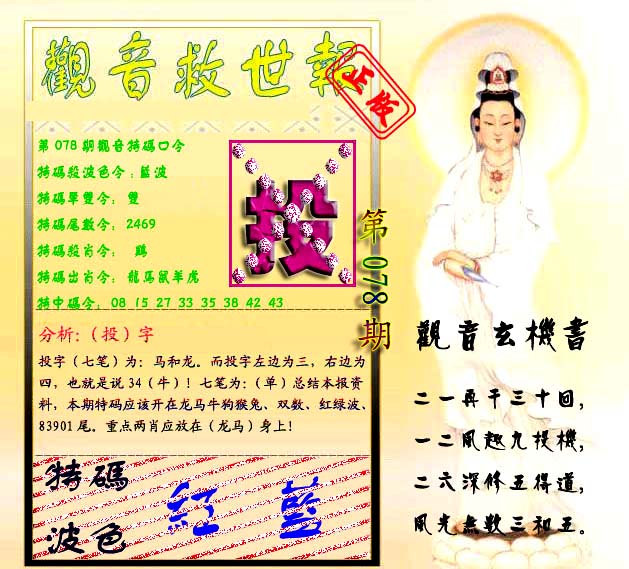 觀音救世報
正版
第 078 期觀音特碼口令
特碼殺波色令：藍波
特碼單雙令： 雙
特碼尾數令： 2469
特碼殺肖令： 鷄
特碼出肖令： 龍馬鼠羊虎
特中碼令： 08 15 27 33 35 38 42 43
投
第 078 期
分析：（投）字
投字（七笔）为：马和龙。而投字左边为三，右边为
四，也就是说 34（牛）！七笔为：（单）总结本报资
料，本期特码应该开在龙马牛狗猴兔、双数、红绿波、
83901 尾。重点两肖应放在（龙马）身上！
特碼
波色
紅 藍
觀音玄機書
二一再干三十回，
一二風趣九投機，
二六深修五得道，
風光無數三和五。